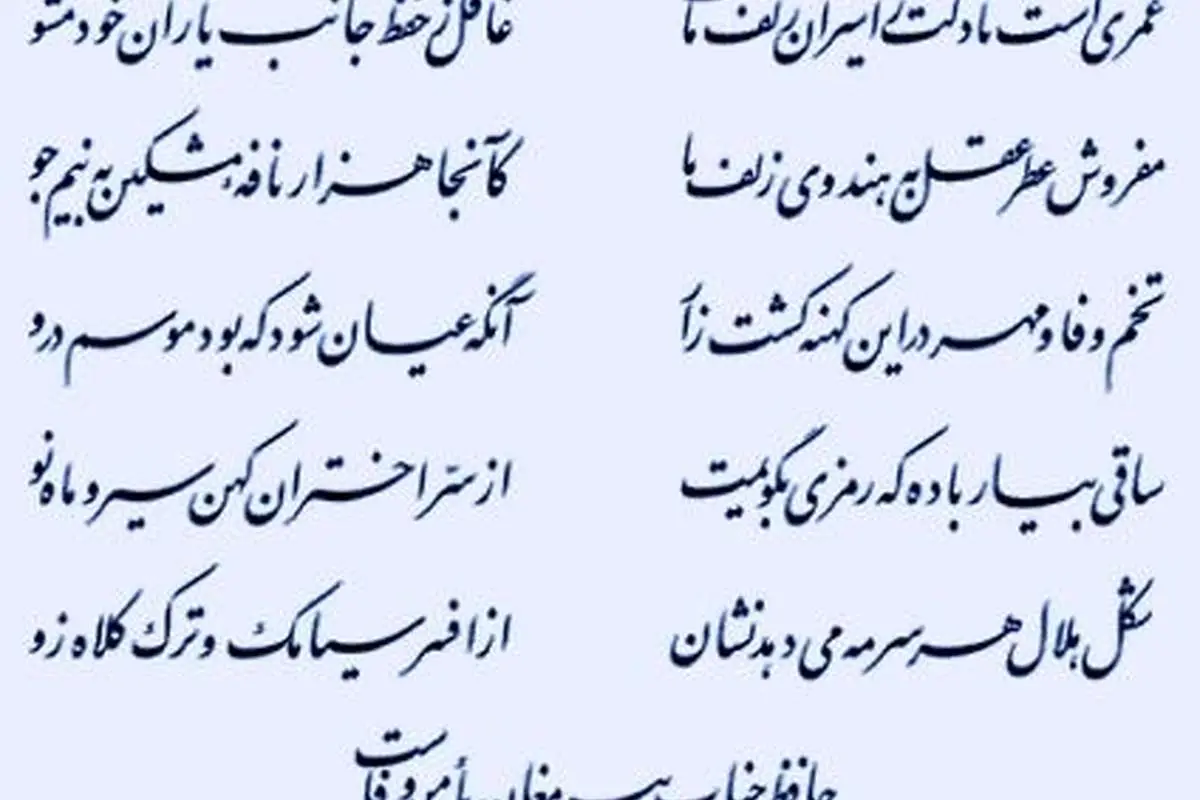 عمری است تا دلت ز اسیران زلف ماست غافل ز حفظ جانب یاران خود مشو
مفروش عطر عقل به هندوی زلف ما کآنجا هزار نافه مشکین به نیم جو
تخم وفا و مهر در این کهنه کشت زار آنگه عیان شود که بود موسم درو
ساقی بیار باده که رمزی بگویمت از سر اختران کهن سیر و ماه نو
شکل هلال هر سر مه می دهد نشان از افسر سیامک و ترک کلاه زو
حافظ جناب پیر مغان مأمن وفاست